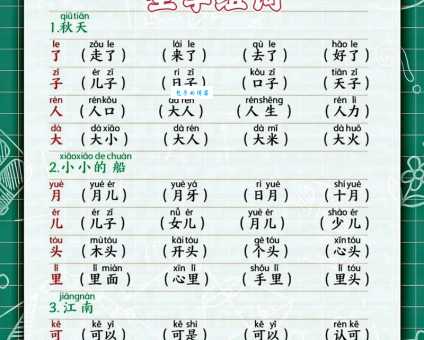 生字组词
qiū tiān
1.秋天
le zǒu le lái le qù le hǎo le
了 (走了) (来了) (去了) (好了)
zǐ ér zǐ rì zǐ kǒu zǐ tiān zǐ
子 (儿子) (日子) (口子) (天子)
包子的博客
rén rén kǒu dà rén rén shēng rén lì
人 (人口) (大人) (人生) (人力)
dà dà xiǎo dà rén dà mǐ dà huǒ
大 (大小) (大人) (大米) (大火)
xiǎo xiǎo de chuán
2.小小的船
yuè yuè ér yuè yá rì yuè shí yuè
月 (月儿) (月牙) (日月) (十月)
ér ér zǐ nǚ ér yuè ér shào ér
儿 (儿子) (女儿) (月儿) (少儿)
tóu mù tóu kāi tóu gè tóu xīn tóu
头 (木头) (开头) (个头) (心头)
lǐ lǐ miàn xīn lǐ shǒu lǐ lǐ tóu
里 (里面) (心里) (手里) (里头)
jiāng nán
3.江南
kě kě yǐ kě shì kě yǐ rèn kě
可 (可以) (可是) (可以) (认可)